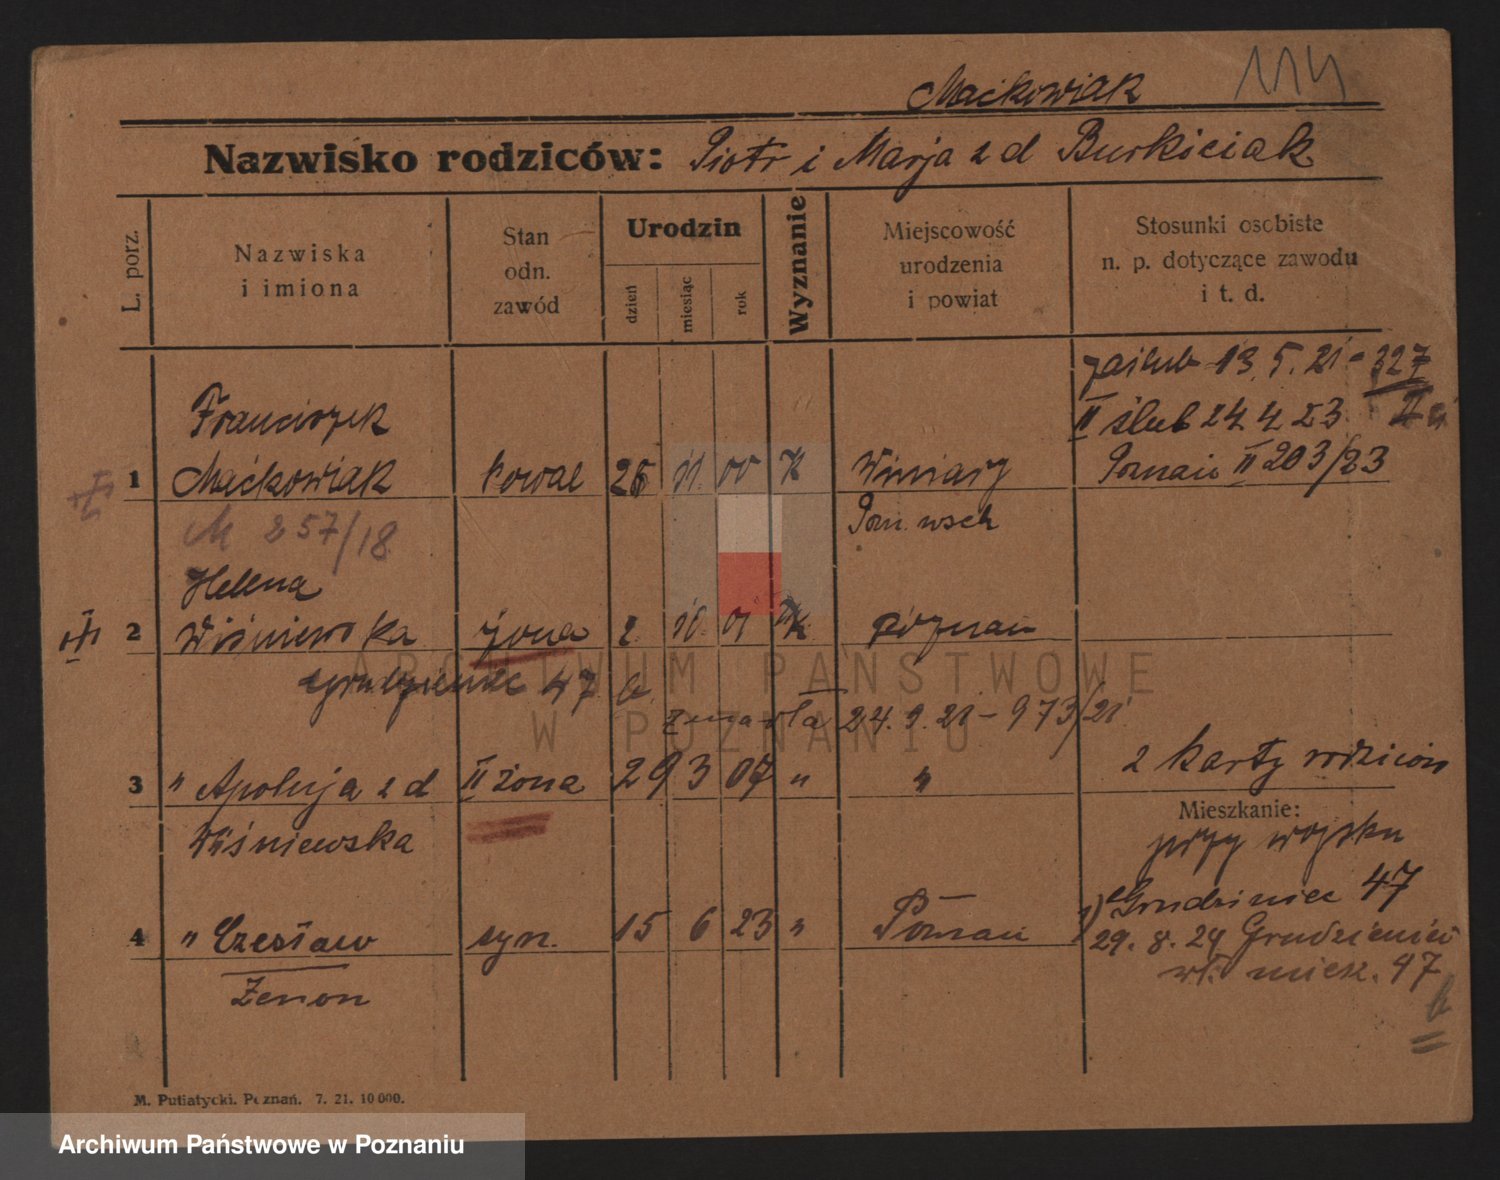 114
Maćkowiak
Nazwisko rodziców: Piotr i Marja z d Burkiciak
L. porz.
Nazwiska
i imiona
Stan
odn.
zawód
Urodzin
dzień
miesiąc
rok
Wyznanie
Miejscowość
urodzenia
i powiat
Stosunki osobiste
n. p. dotyczące zawodu
i t. d.
zaślub 13. 5. 21 - 327
II ślub 24 4 23 II
Franciszek
1 Maćkowiak kowal 26 11. 00 K Winiary Poznań II 203/23
M 257/18 Pozn. wsch
Helena
2 Wiśniewska żona 2. 10. 01 K Poznań
Grudzieniec 47
zmarła 24. 9. 21 - 973/21
3 " Apolonja z d II żona 29 3 07 " " 2 karty rodziców
Mieszkanie:
Wiśniewska przy wojsku
1) Grudziniec 47
4 " Czesław syn. 15 6 23 " Poznań 29. 8. 24 Grudzieniec
Zenon wł. miesz. 47
b
M. Putiatycki. Poznań. 7. 21. 10 000.
ARCHIWUM PAŃSTWOWE
W POZNANIU
Archiwum Państwowe w Poznaniu